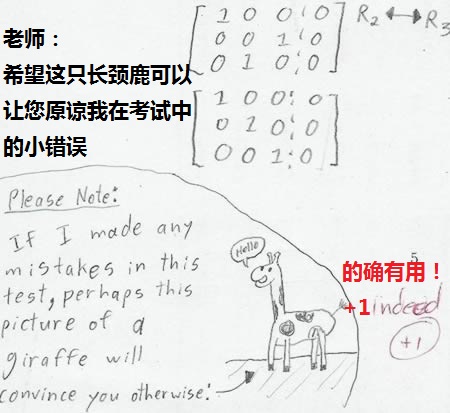 [ 1 0 0 ¦ 0 ] R₂ ↔ R₃
[ 0 0 1 ¦ 0 ]
[ 0 1 0 ¦ 0 ]
老师：
希望这只长颈鹿可以
让您原谅我在考试中
的小错误
[ 1 0 0 ¦ 0 ]
[ 0 1 0 ¦ 0 ]
[ 0 0 1 ¦ 0 ]
Please Note:
If I made any
mistakes in this
test, perhaps this
picture of a
giraffe will
convince you otherwise:
Hello
5
的确有用！
+1 indeed
+1